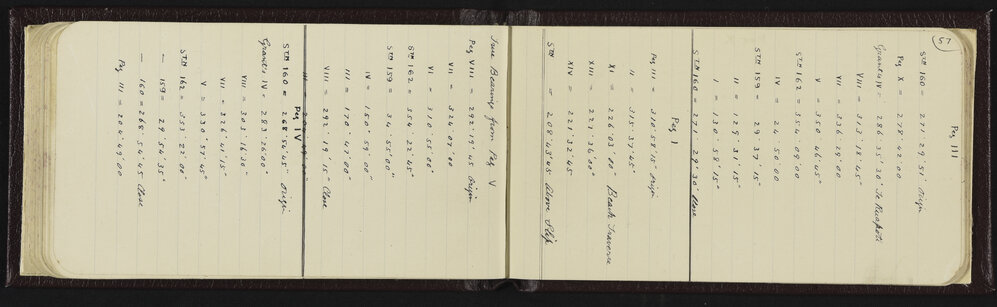 57
Peg III
STN 160 = 271° 29' 51" Origin
Peg X = 278° 42' 00"
Grants IV = 286° 35' 30" Te Ruapeti
VIII = 313° 18' 45"
VII = 336° 29' 00"
V = 350° 46' 45"
STN 162 = 354° 09' 00"
IV = 24° 50' 00"
STN 159 = 29° 37' 15"
II = 129° 31' 15"
I = 130° 58' 15"
STN 160 = 271° 29' 30" Close
Peg I
Peg III = 310° 58' 15" Origin
II = 315° 37' 45"
XI = 226° 03' 00" Beach Traverse
XIII = 227° 36' 00"
XIV = 221° 32' 45"
STN = 208° 43' 45" Above Slip
True Bearings from Peg V
Peg VIII = 292° 19' 45" Origin
VII = 324° 07' 00"
VI = 310° 55' 00"
STN 162 = 354° 22' 45"
STN 159 = 34° 55' 00"
IV = 150° 59' 00"
III = 170° 47' 00"
VIII = 292° 19' 15" Close
Peg IV
STN 160 = 268° 54' 45" Origin
Grants IV = 283° 26' 00"
VIII = 303° 16' 30"
VII = 326° 41' 15"
V = 330° 57' 45"
STN 162 = 353° 22' 00"
— 159 = 29° 54' 15"
— 160 = 268° 54' 45" Close
Peg III = 204° 49' 00"